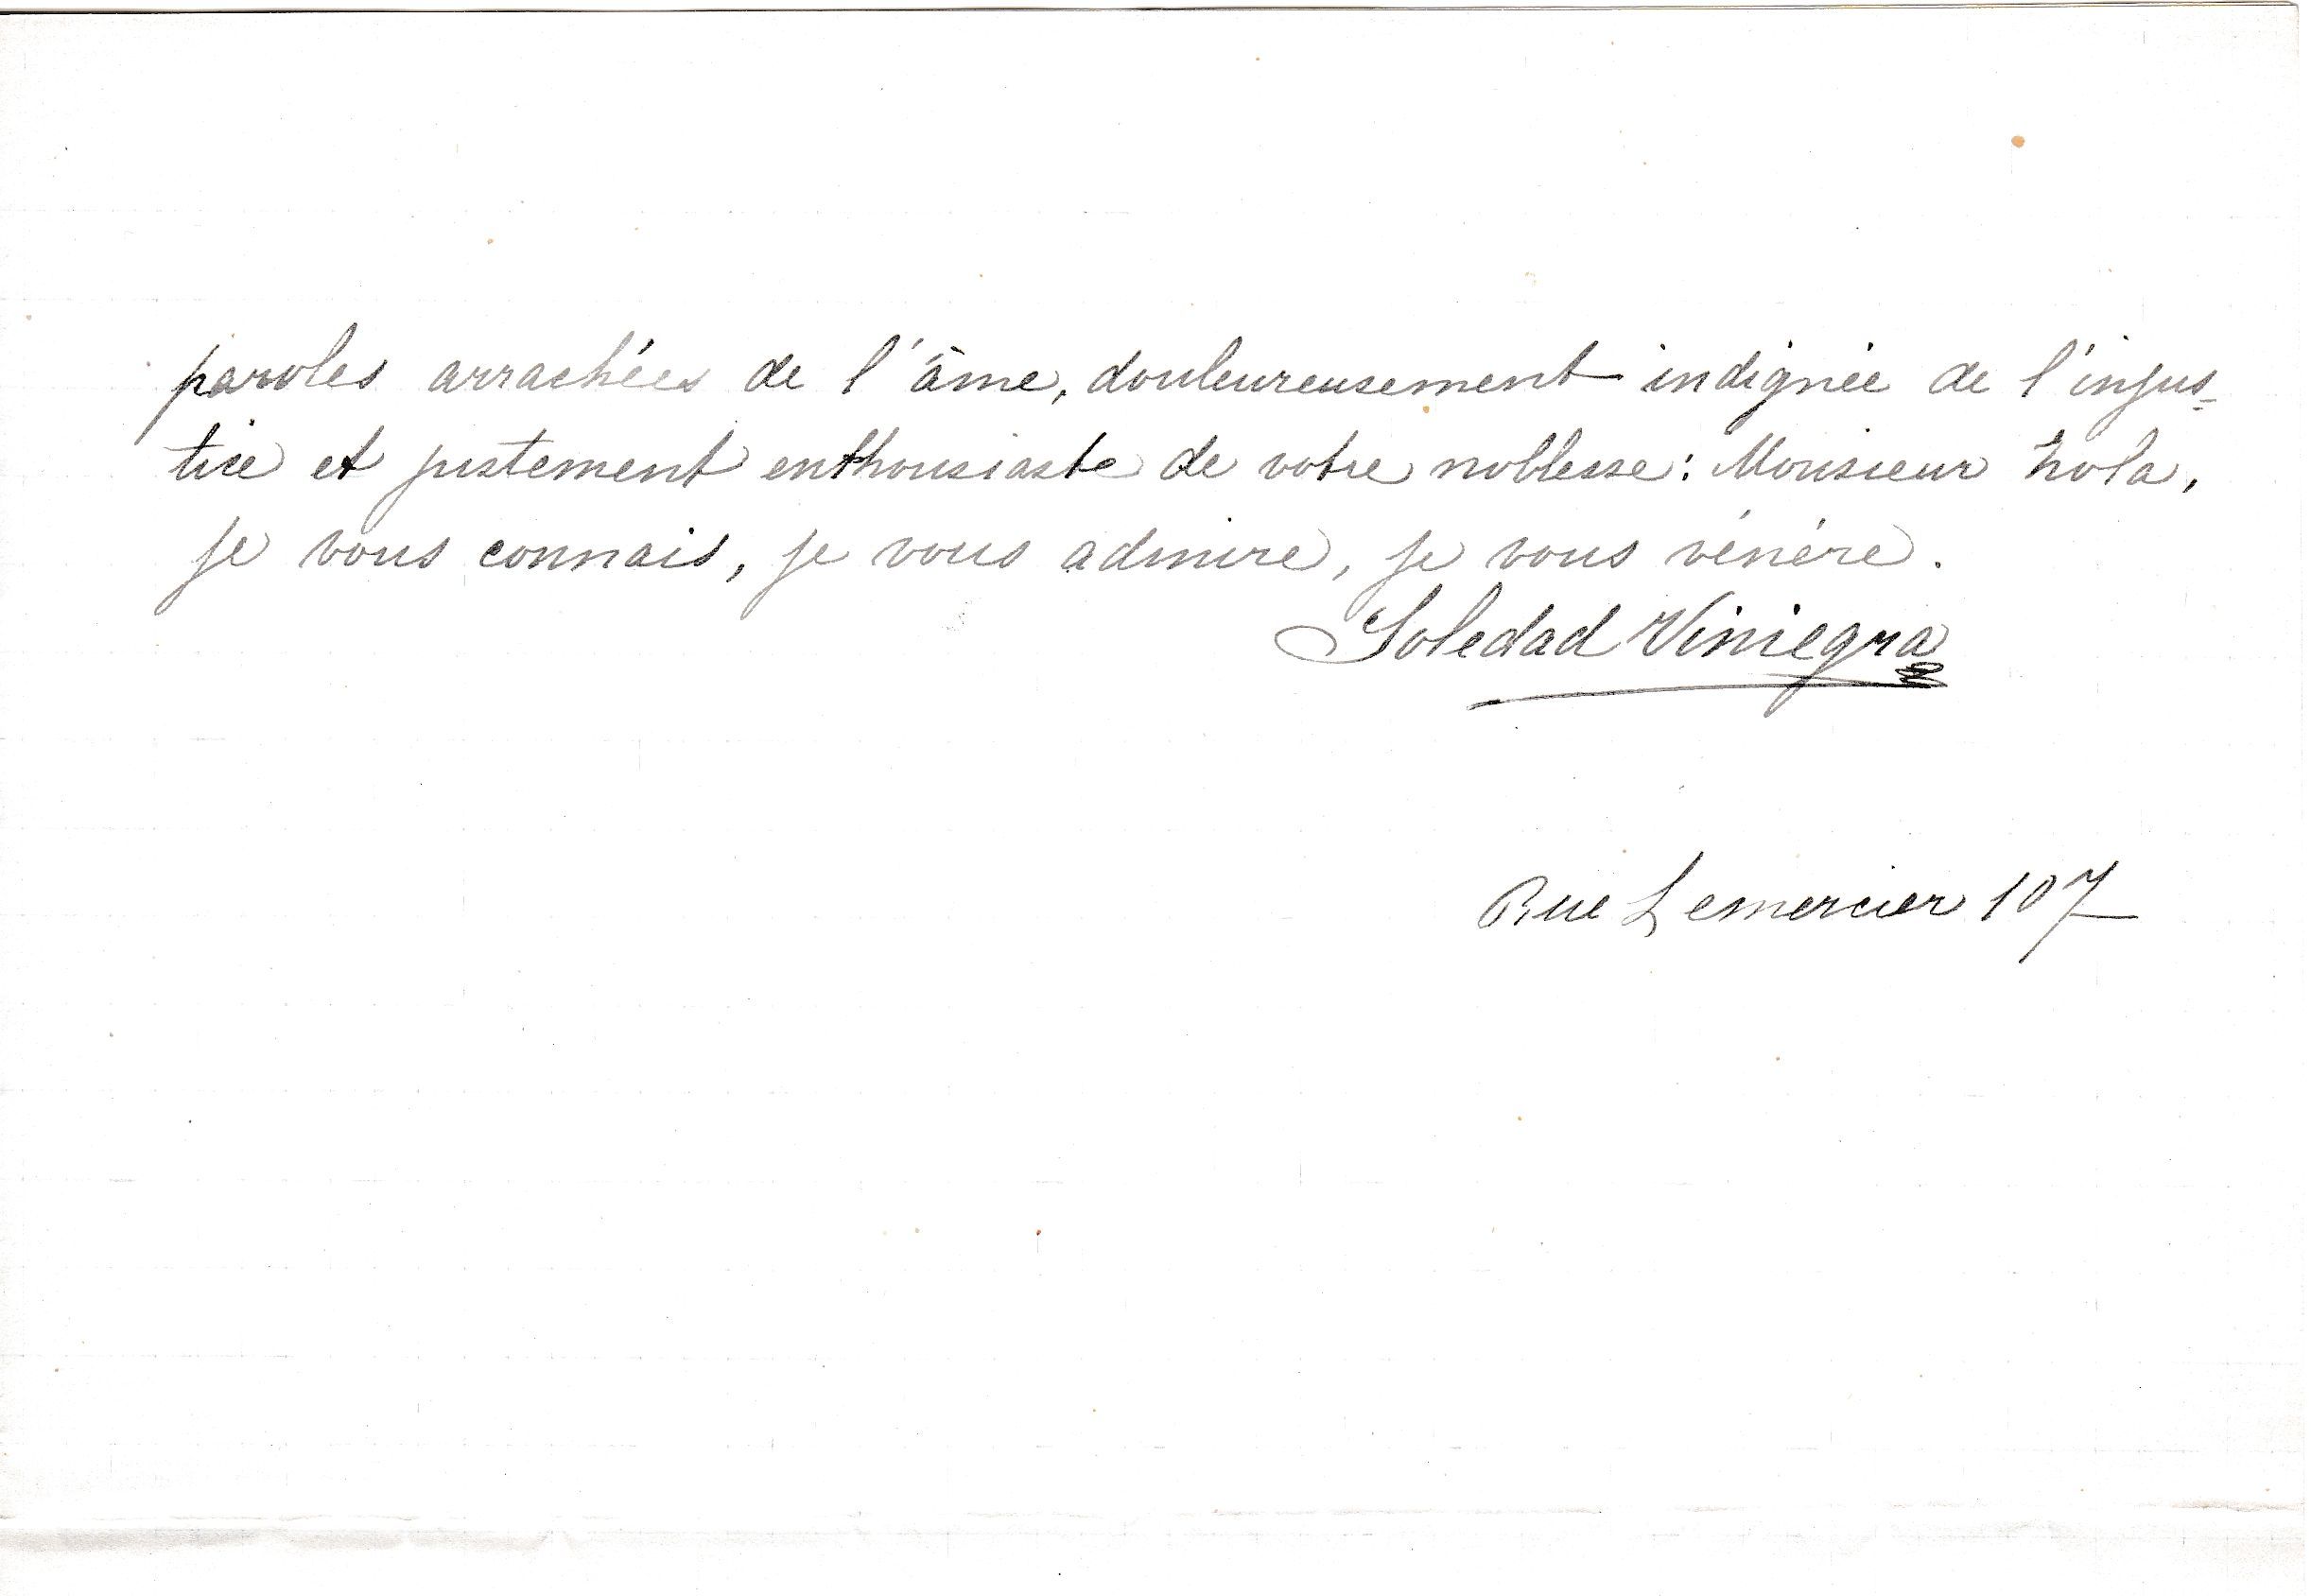 paroles arrachées de l'âme, douleureusement indignée de l'injus-
tice et justement enthousiaste de votre noblesse: Monsieur Zola,
je vous connais, je vous admire, je vous vénère.
Soledad Viniegra
Rue Lemercier 107